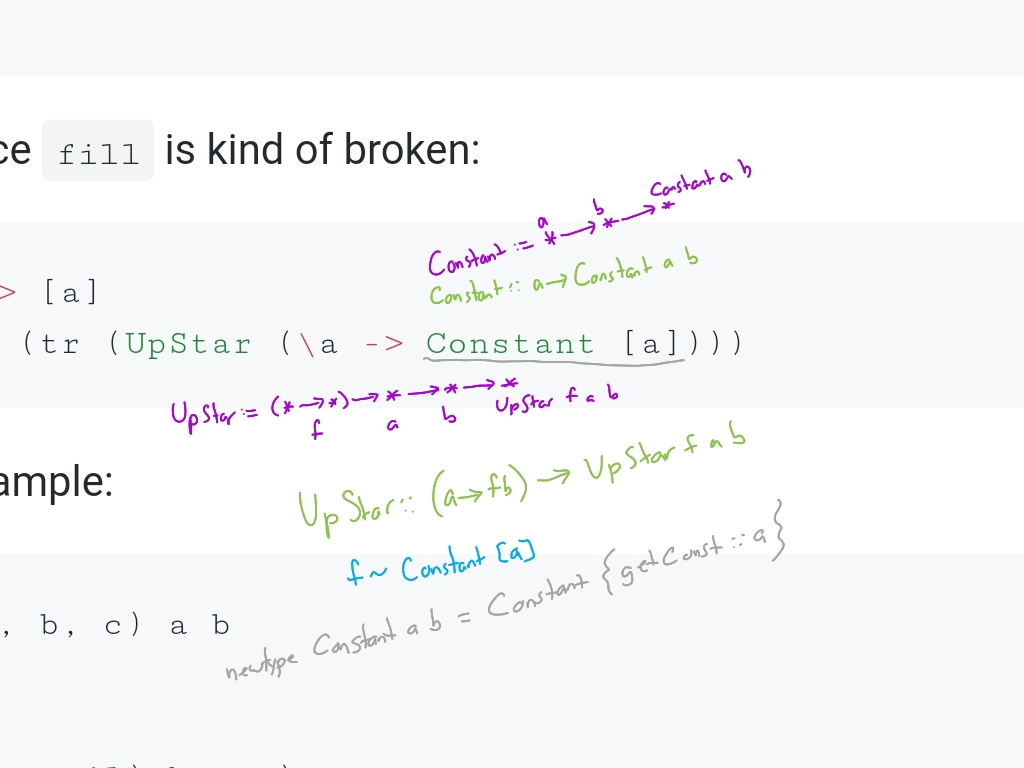 ce fill is kind of broken:
Constant := * → * → *
a b Constant a b
Constant :: a → Constant a b
> [a]
(tr (UpStar (\a -> Constant [a])))
UpStar := (* → *) → * → * → *
f a b UpStar f a b
ample:
UpStar :: (a → f b) → UpStar f a b
f ~ Constant [a]
newtype Constant a b = Constant {getConst :: a}
, b, c) a b